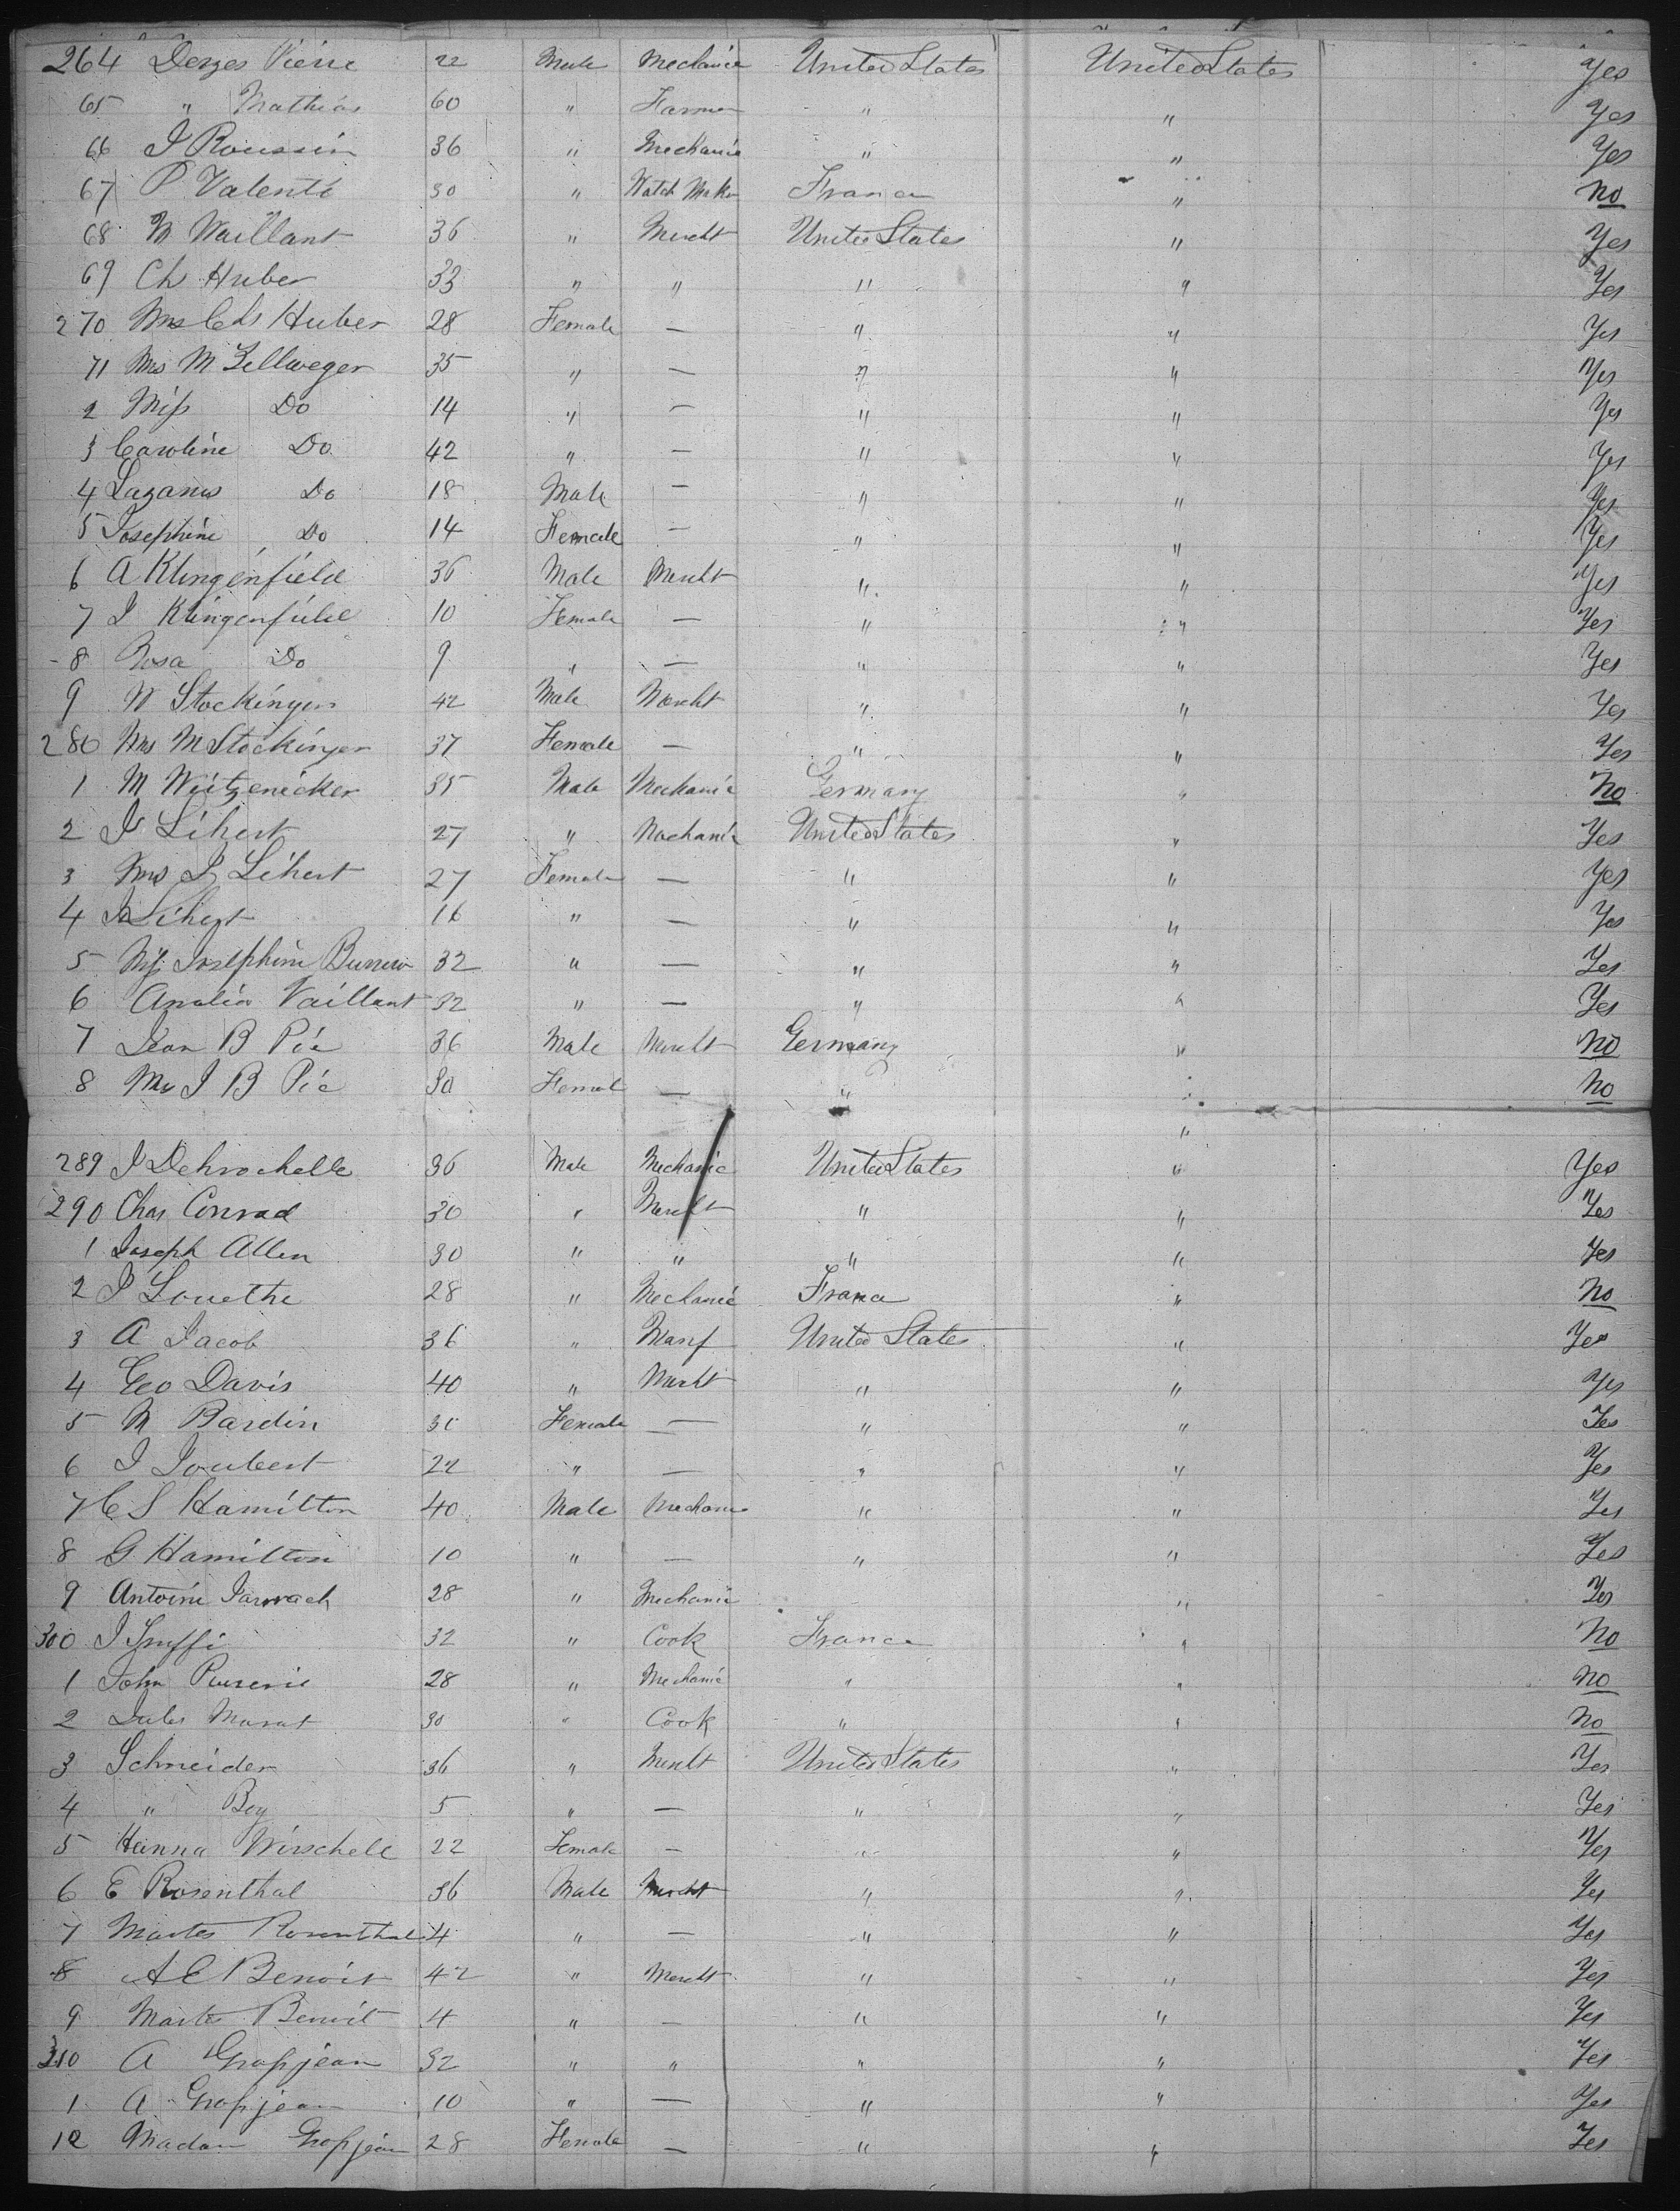 264 Derges Pierre 22 Male Mechanic United States United States Yes
65 " Mathias 60 " Farmer " " Yes
66 J Roussin 36 " Mechanic " " Yes
67 P Valenti 30 " Watch Maker France " No
68 M Vaillant 36 " Mercht United States " Yes
69 Ch Huber 33 " " " " Yes
270 Mrs Chs Huber 28 Female — " " Yes
71 Mrs M Zellweger 35 " — " " Yes
2 Miss Do 14 " — " " Yes
3 Caroline Do 42 " — " " Yes
4 Lazarus Do 18 Male — " " Yes
5 Josephine Do 14 Female — " " Yes
6 A Klingenfield 36 Male Mercht " " Yes
7 J Klingenfield 10 Female — " " Yes
8 Rosa Do 9 " — " " Yes
9 N Stockinger 42 Male Mercht " " Yes
280 Mrs M Stockinger 37 Female — " " Yes
1 M Weitzenicker 35 Male Mechanic Germany " No
2 J Lihert 27 " Mechanic United States " Yes
3 Mrs J Lihert 27 Female — " " Yes
4 J Lihert 16 " — " " Yes
5 Josephine 32 " — " " Yes
6 Analia Vaillant 32 " — " " Yes
7 Jean B Pic 36 Male Mercht Germany " No
8 Mrs J B Pic 30 Female — " " No
"
289 J Dehrochelle 36 Male Mechanic United States " Yes
290 Chas Conrad 30 " Mercht " " Yes
1 Joseph Allen 30 " " " " Yes
2 J Louethe 28 " Mechanic France " No
3 A Jacob 36 " Manf United States " Yes
4 Geo Davis 40 " Mercht " " Yes
5 M Bardin 30 Female — " " Yes
6 J Joubert 22 " — " " Yes
7 C S Hamilton 40 Male Mechanic " " Yes
8 G Hamilton 10 " — " " Yes
9 Antoine 28 " Mechanic " Yes
300 J 32 " Cook France " No
1 John 28 " Mechanic " " No
2 Jules Marat 30 " Cook " " No
3 Schneider 36 " Mercht United States " Yes
4 " Boy 5 " — " " Yes
5 Hanna Wirschell 22 Female — " " Yes
6 E Rosenthal 36 Male Mercht " " Yes
7 Master Rosenthal 4 " — " " Yes
8 A E Benoit 42 " Mercht " " Yes
9 Master Benoit 4 " — " " Yes
310 A Grosjean 32 " " " " Yes
1 A Grosjean 10 " — " " Yes
12 Madam Grosjean 28 Female — " " Yes